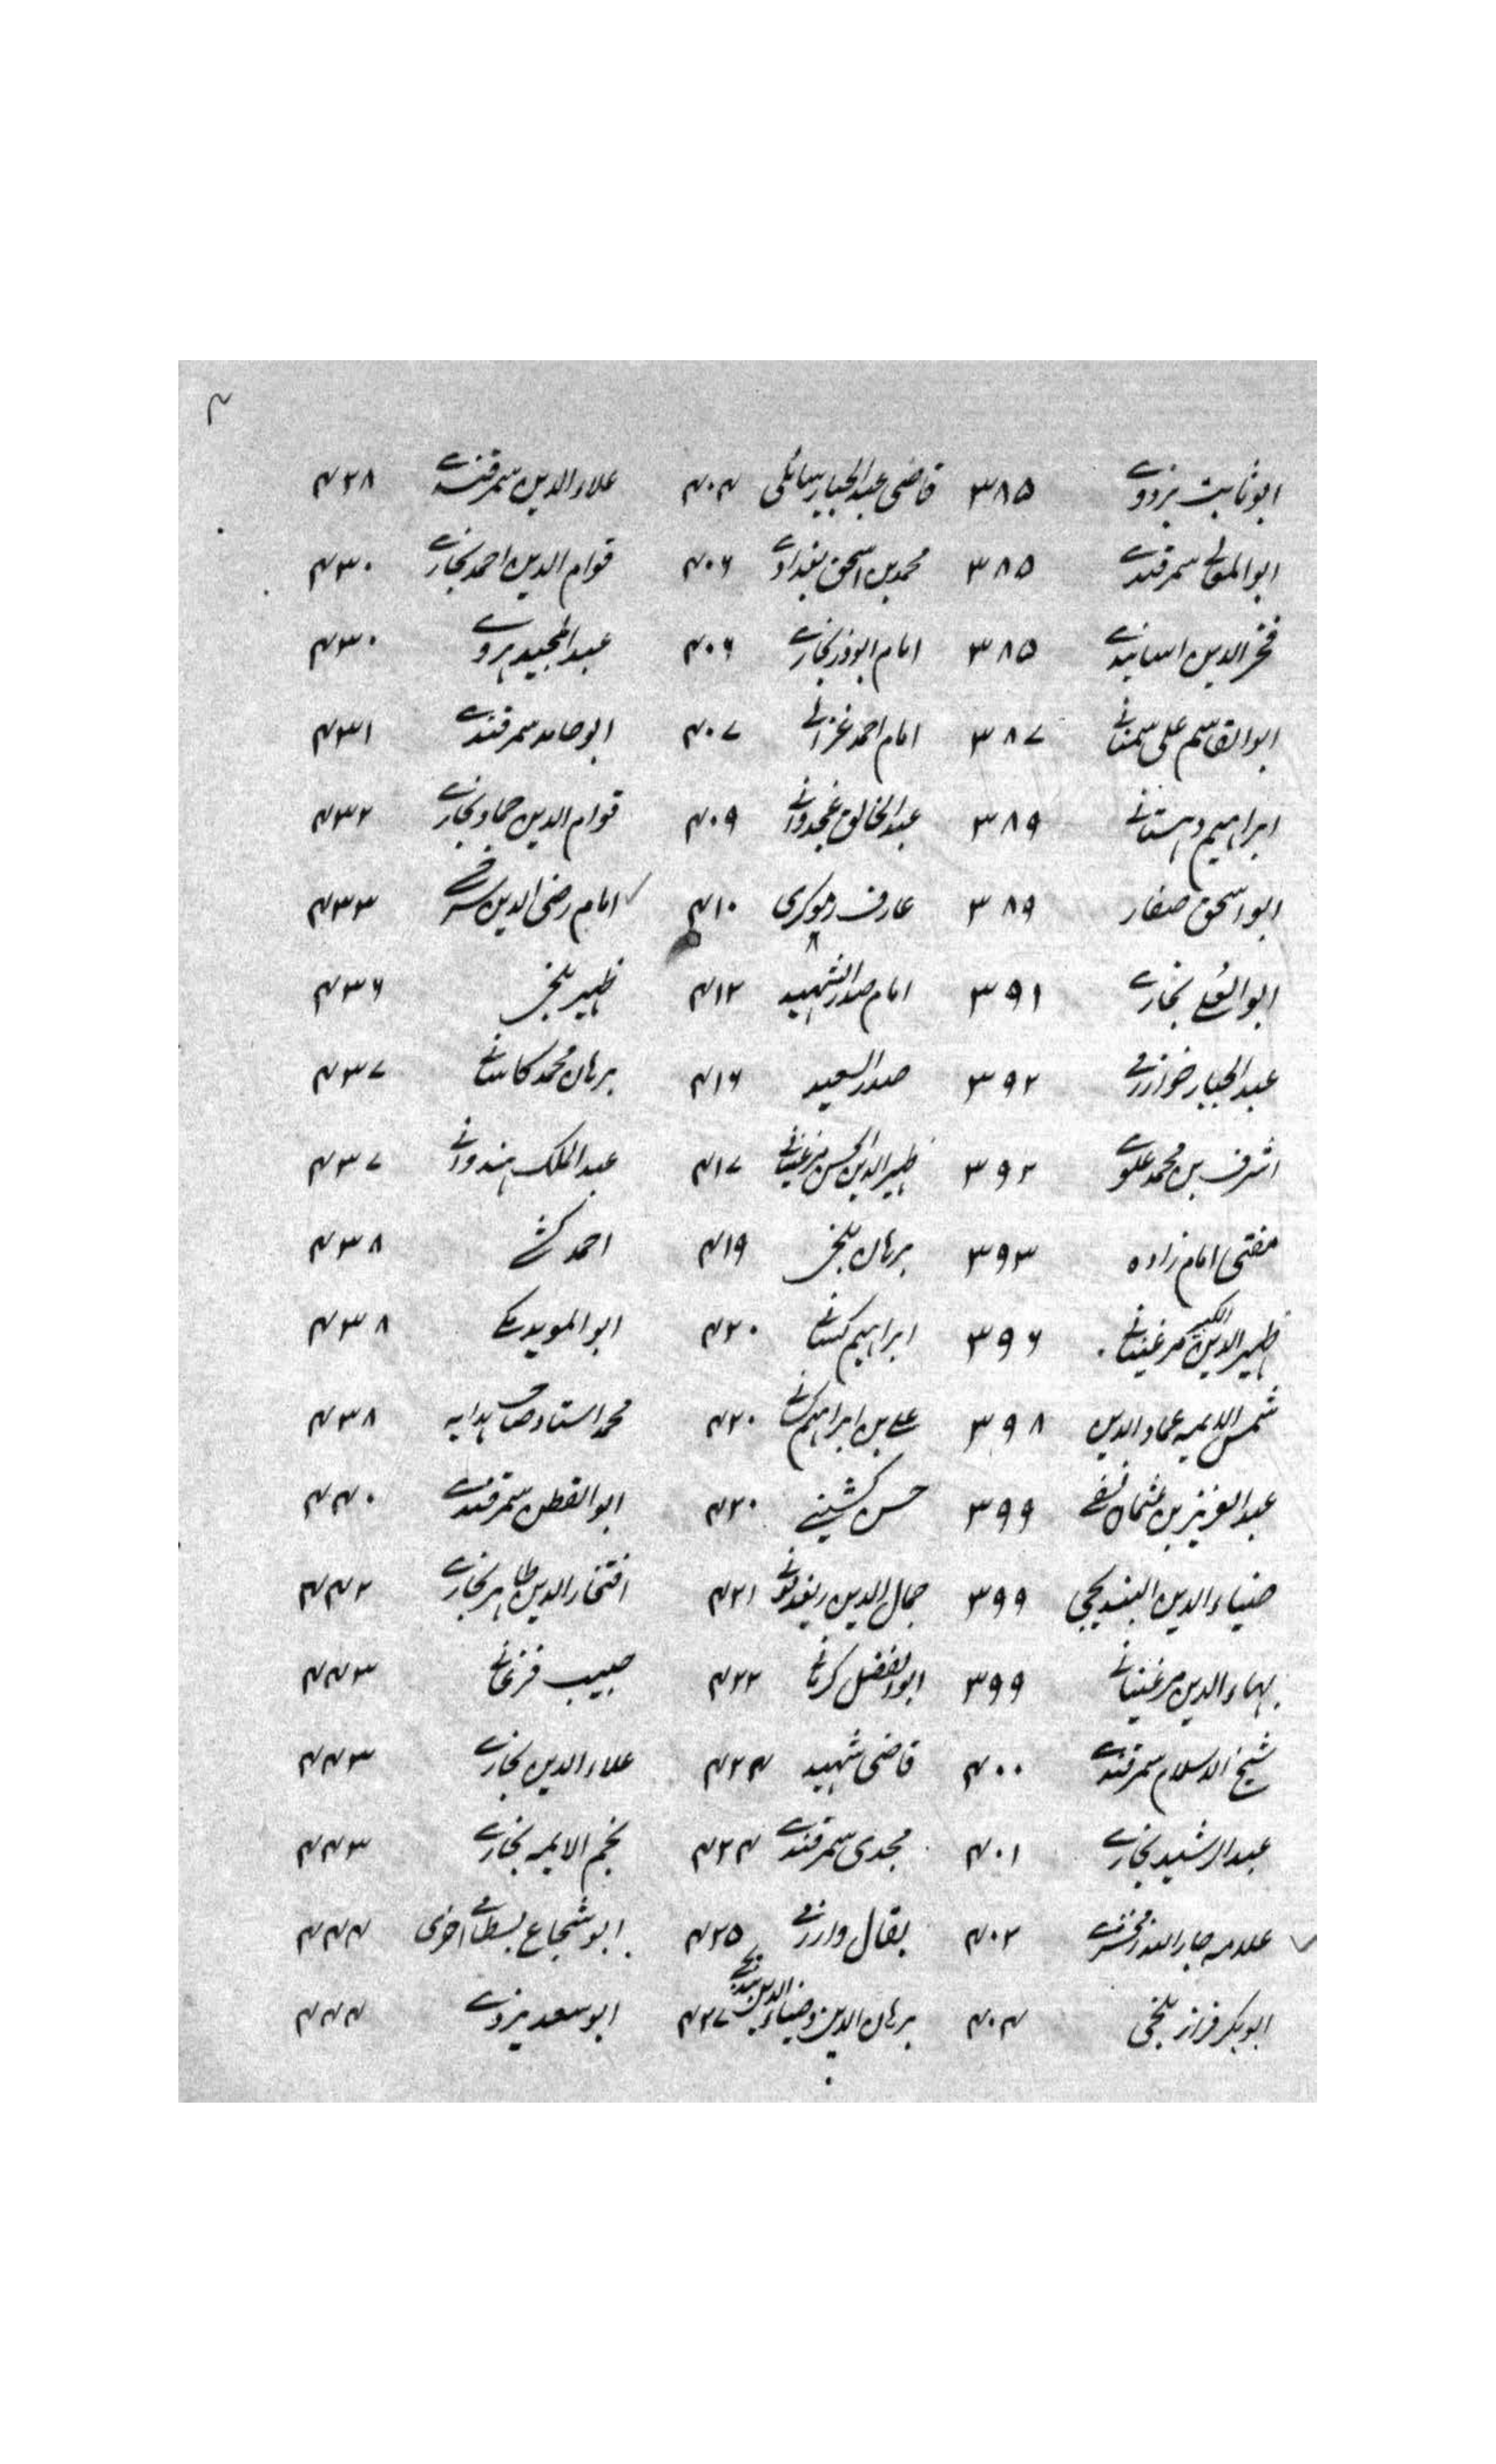 ۴
ابوثابت بزدوے ۳۸۵ قاضی عبدالجبار ۴۰۴ علاءالدین سمرقندے ۴۲۸
ابوالمعالے سمرقندے ۳۸۵ محمد بن اسحق بغدادے ۴۰۶ قوام الدین احمد بخارے ۴۳۰
فخرالدین ۳۸۵ امام ابوذر بخارے ۴۰۶ عبدالمجید ہروے ۴۳۰
ابوالقاسم علی سمنانے ۳۸۷ امام احمد غزالے ۴۰۷ ابوحامد سمرقندے ۴۳۱
ابراہیم دہستانے ۳۸۹ عبدالخالق غجدوانے ۴۰۹ قوام الدین حماد بخارے ۴۳۲
ابواسحق صفار ۳۸۹ عارف ریوکری ۴۱۰ امام رضی الدین سرخسے ۴۳۳
بخارے ۳۹۱ امام صدرالشہید ۴۱۲ ظہیر بلخی ۴۳۶
عبدالجبار خوارزمے ۳۹۲ صدرالسعید ۴۱۶ برہان محمد کاسانے ۴۳۷
اشرف بن محمد علوے ۳۹۲ ظہیرالدین الحسن مرغینانے ۴۱۷ عبدالملک ہندوانے ۴۳۷
مفتی امام زادہ ۳۹۳ برہان بلخی ۴۱۹ احمد کشے ۴۳۸
ظہیرالدین الکبیر مرغینانے ۳۹۶ ابراہیم ۴۲۰ ابوالموید مکے ۴۳۸
شمس الایمہ عمادالدین ۳۹۸ علے بن ابراہیم ۴۲۰ محمد استاد صاحب ہدایہ ۴۳۸
عبدالعزیز بن عثمان نسفے ۳۹۹ حسن ۴۲۰ سمرقندے ۴۴۰
ضیاءالدین البندیجی ۳۹۹ جمال الدین ریغدمونے ۴۲۱ افتخارالدین طاہر بخارے ۴۴۲
بہاءالدین مرغینانے ۳۹۹ ابوالفضل کرمانے ۴۲۲ حبیب فرغانے ۴۴۳
شیخ الاسلام سمرقندے ۴۰۰ قاضی شہید ۴۲۴ علاءالدین بخارے ۴۴۳
عبدالرشید بخارے ۴۰۱ مجدی سمرقندے ۴۲۴ نجم الایمہ بخارے ۴۴۳
علامہ جاراللہ زمخشرے ۴۰۲ بقال ۴۲۵ ابوشجاع بسطامے ۴۴۴
ابوبکر بلخی ۴۰۴ برہان الدین وضیاءالدین ۴۲۷ ابوسعد بزدوے ۴۴۴